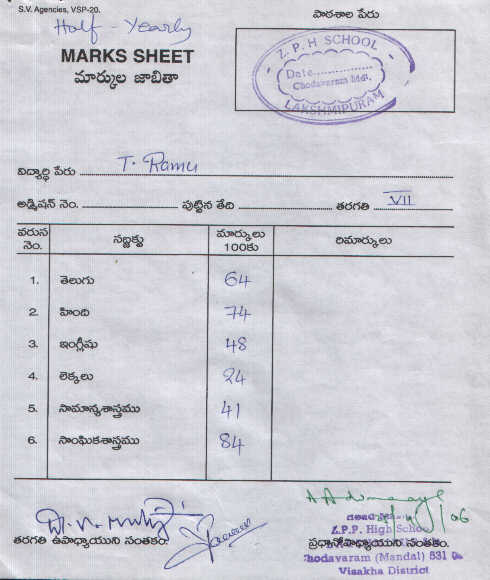 S.V. Agencies, VSP-20.
Half - Yearly
MARKS SHEET
మార్కుల జాబితా
పాఠశాల పేరు
Z. P. H SCHOOL
Date..............
Chodavaram Mdl.
LAKSHMIPURAM
విద్యార్థి పేరు T. Ramu
అడ్మిషన్ నెం. పుట్టిన తేది తరగతి VII
వరుస నెం. సబ్జక్టు మార్కులు 100కు రిమార్కులు
1. తెలుగు 64
2. హింది 74
3. ఇంగ్లీషు 48
4. లెక్కలు 24
5. సామాన్యశాస్త్రము 41
6. సాంఘికశాస్త్రము 84
తరగతి ఉపాధ్యాయుని సంతకం.
Z.P.P. High School
ప్రధానోపాధ్యాయుని సంతకం.
Chodavaram (Mandal) 531 0
Visakha District